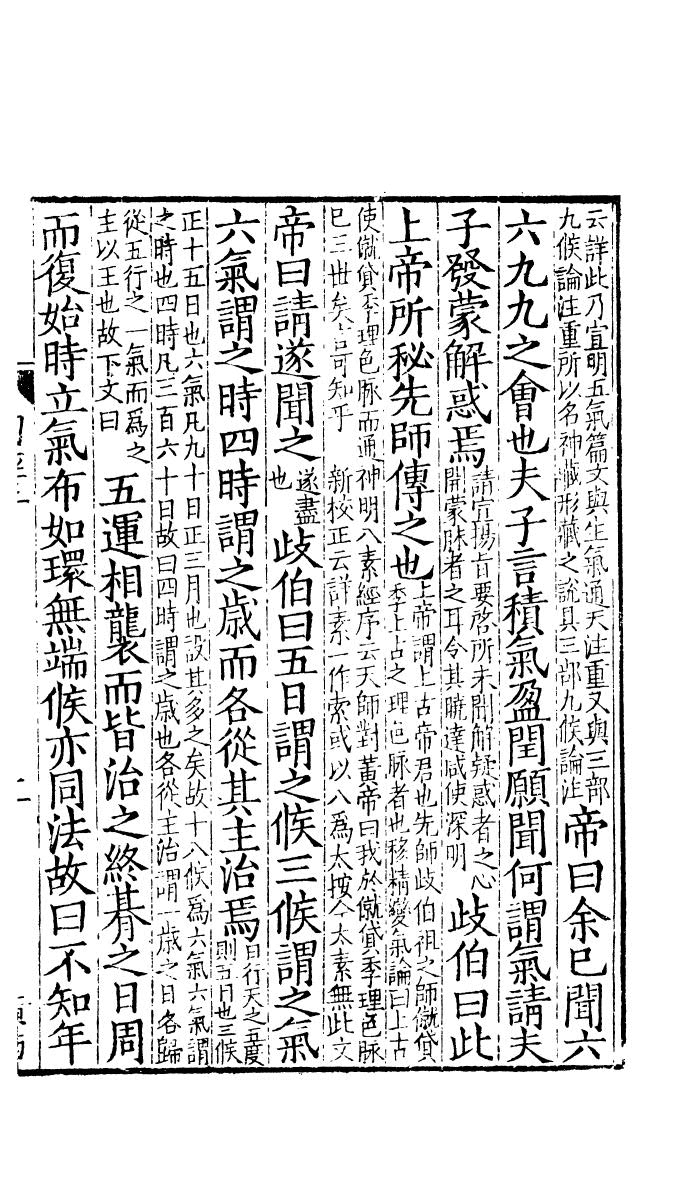 云詳此乃宣明五氣篇文與生氣通天注重又與三部
九候論注重所以名神藏形藏之說具三部九候論注
帝曰余已聞六
六九九之會也夫子言積氣盈閏願聞何謂氣請夫
子發蒙解惑焉
請宣揚旨要啓所未聞解疑惑者之心
開蒙昧者之耳令其曉達咸使深明
歧伯曰此
上帝所秘先師傳之也
上帝謂上古帝君也先師歧伯祖之師僦貸
季上古之理色脉者也移精變氣論曰上古
使僦貸季理色脉而通神明八素經序云天師對黃帝曰我於僦貸季理色脉
已三世矣言可知乎 新校正云詳素一作索或以八爲太按今太素無此文
帝曰請遂聞之
遂盡
也
歧伯曰五日謂之候三候謂之氣
六氣謂之時四時謂之歲而各從其主治焉
日行天之五度
則五日也三候
正十五日也六氣凡九十日正三月也設其多之矣故十八候爲六氣六氣謂
之時也四時凡三百六十日故曰四時謂之歲也各從主治謂一歲之日各歸
從五行之一氣而爲之
主以王也故下文曰
五運相襲而皆治之終朞之日周
而復始時立氣布如環無端候亦同法故曰不知年